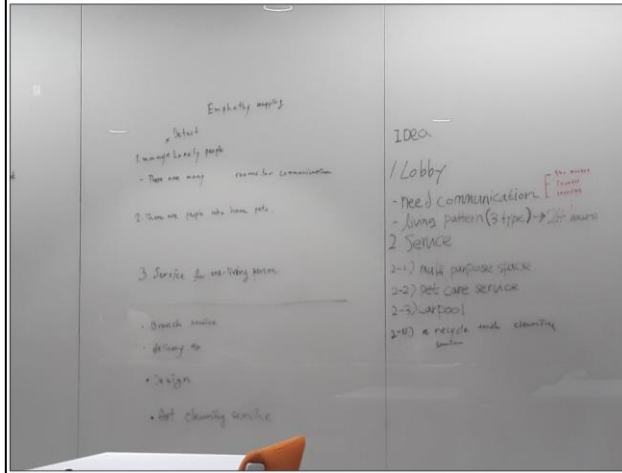 Emphathy mapping
Detect
1. manage Lonely people
- There are many rooms for communication
2. There are people who have pets.
3. Service for one-living person
• Branch service
• delivery
• Design
• Art cleaning service
IDea
1 Lobby
- need communication
- living pattern (3 type) → 24 hours
2 Service
2-1) multi purpose space
2-2) Pet care service
2-3) carpool
a recycle and cleaning